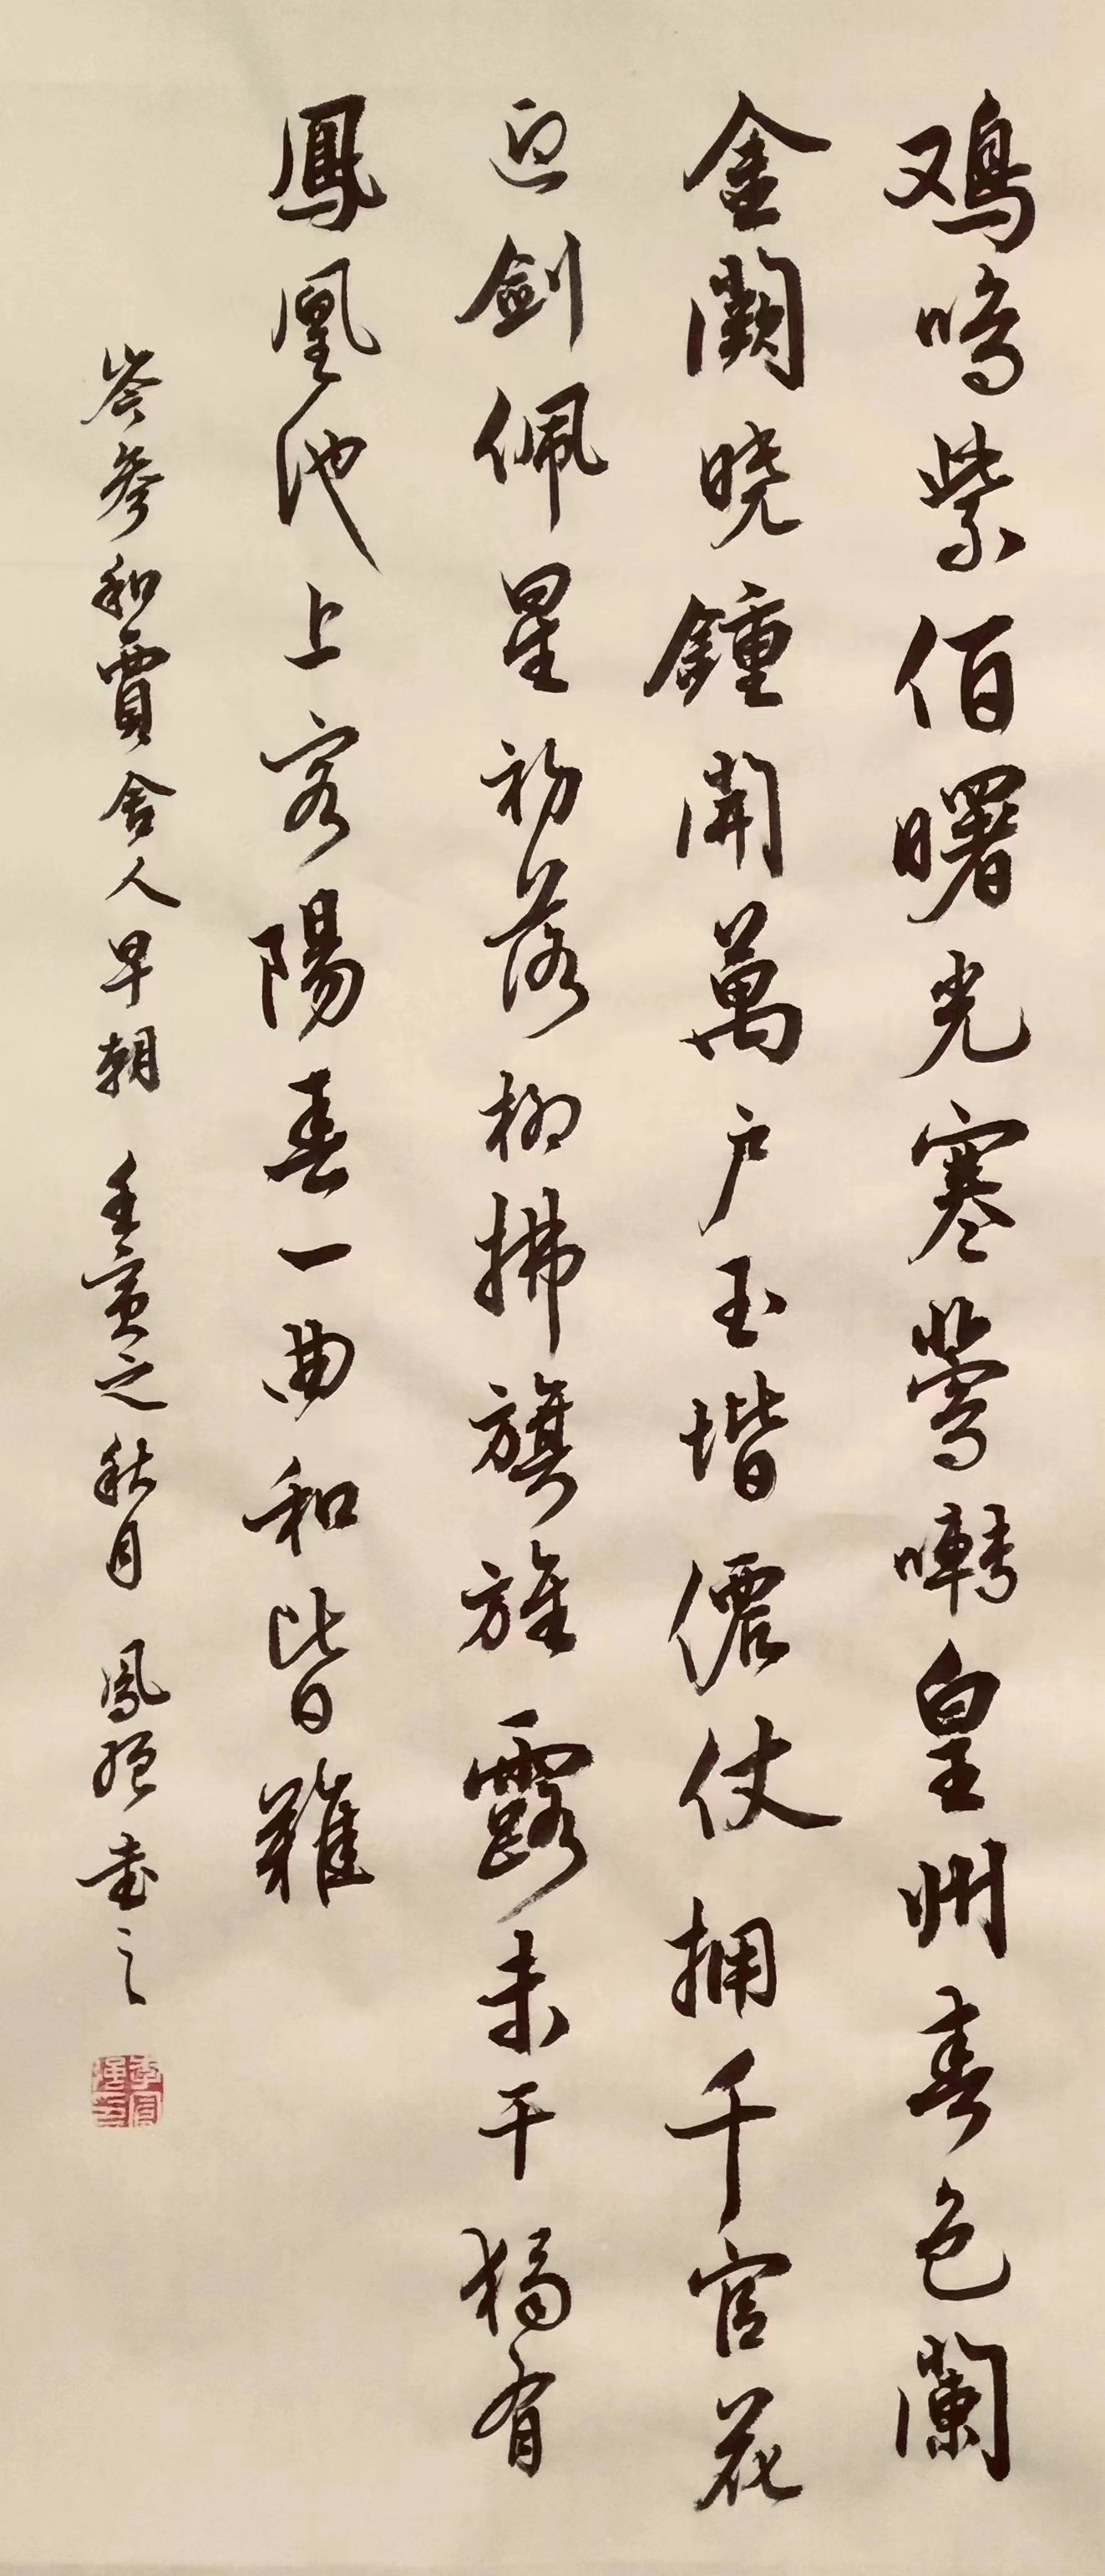 鸡鸣紫佰曙光寒鶯囀皇州春色闌
金闕晓鍾開萬户玉堦僊仗拥千官花
迎劍佩星初落柳拂旗旌露未干獨有
鳳凰池上客陽春一曲和皆難
岑参和賈舍人早朝 壬寅之秋月 鳳强書之